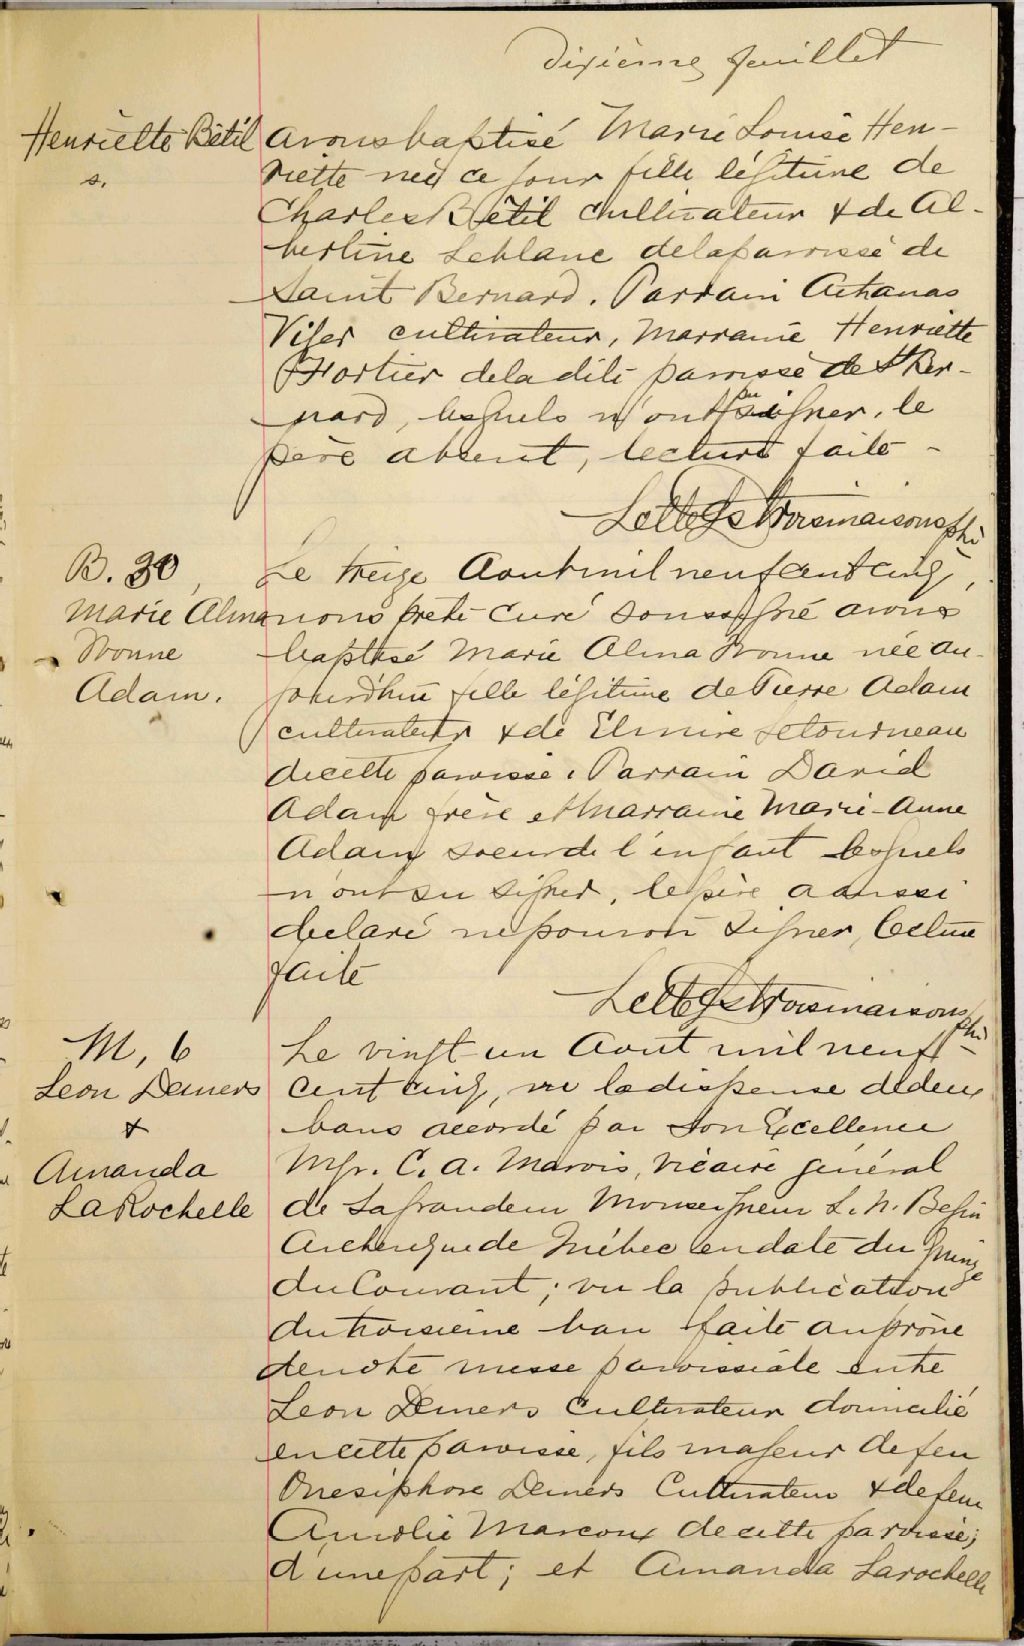 dixième feuillet
Henriette Bétil
s.
avons baptisé Marie Louise Hen-
riette née ce jour fille légitime de
Charles Bétil cultivateur & de Al-
bertine Leblanc de la paroisse de
Saint Bernard. Parrain Athanas
cultivateur, Marraine Henriette
Fortier de la dite paroisse de St Ber-
nard, lesquels n'ont su signer, le
père absent, lecture faite -
Ptre
B. 30
Marie Alma
Yvonne
Adam.
Le treize Aout mil neuf cent cinq,
nous prêtre curé soussigné avons
baptisé Marie Alma Yvonne née au-
jourd'hui fille légitime de Pierre Adam
cultivateur & de Elmire Letourneau
de cette paroisse. Parrain David
Adam frère et Marraine Marie-Anne
Adam soeur de l'enfant lesquels
n'ont su signer, le père a aussi
declaré ne pouvoir signer, lecture
faite
Ptre
M, 6
Leon Demers
&
Amanda
LaRochelle
Le vingt-un Aout mil neuf
cent cinq, vu la dispense de deux
bans accordé par Son Excellence
Mgr. C. A. Marois, vicaire général
de Sa grandeur Monseigneur L. N. Begin
Archevêque de Québec en date du quinze
du Courant; vu la publication
du troisième ban faite au prône
de notre messe paroissiale entre
Leon Demers Cultivateur domicilié
en cette paroisse, fils majeur de feu
Onesiphore Demers Cultivateur & de feue
Aurelie Marcoux de cette paroisse;
d'une part; et Amanda Larochelle